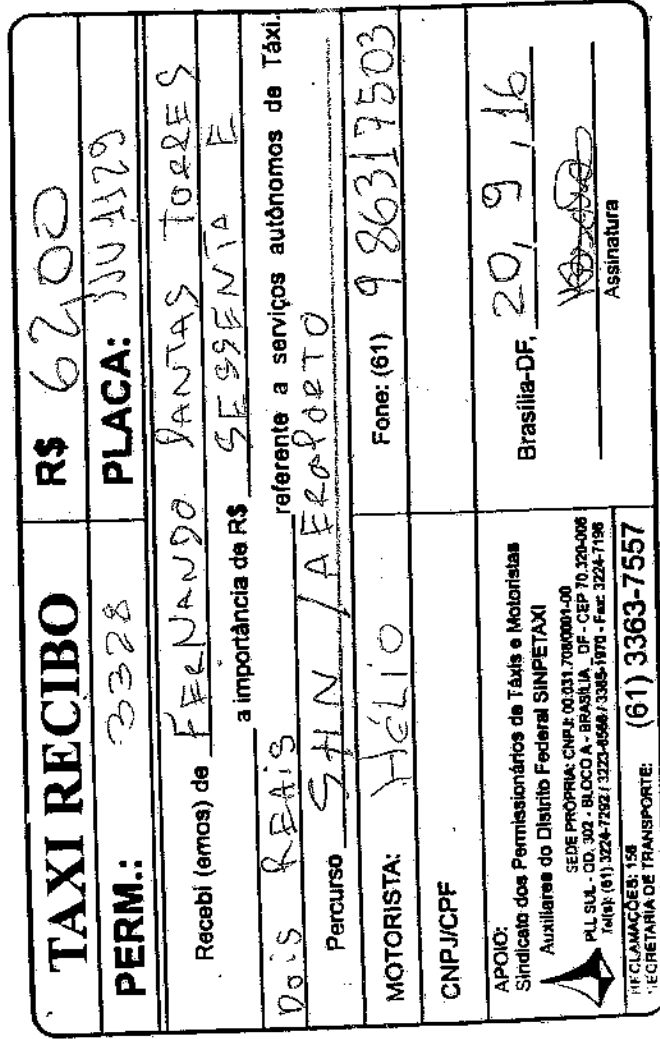 TAXI RECIBO R$ 62,00
PERM.: 3328 PLACA: JJU 1129
Recebi (emos) de FERNANDO DANTAS TORRES
a importância de R$ SESSENTA E
DOIS REAIS referente a serviços autônomos de Táxi.
Percurso SHN / AEROPORTO
MOTORISTA: HÉLIO Fone: (61) 986317503
CNPJ/CPF
APOIO:
Sindicato dos Permissionários de Táxis e Motoristas
Auxiliares do Distrito Federal SINPETAXI
SEDE PRÓPRIA: CNPJ: 00.031.708/0001-00
PLL SUL - QD. 302 - BLOCO A - BRASÍLIA - DF - CEP 70.320-006
Tel(s): (61) 3224-7292 / 3223-6566 / 3385-1970 - Fax: 3224-7196
Brasília-DF, 20, 9, 16
Assinatura
RECLAMAÇÕES: 156
SECRETARIA DE TRANSPORTE: (61) 3363-7557